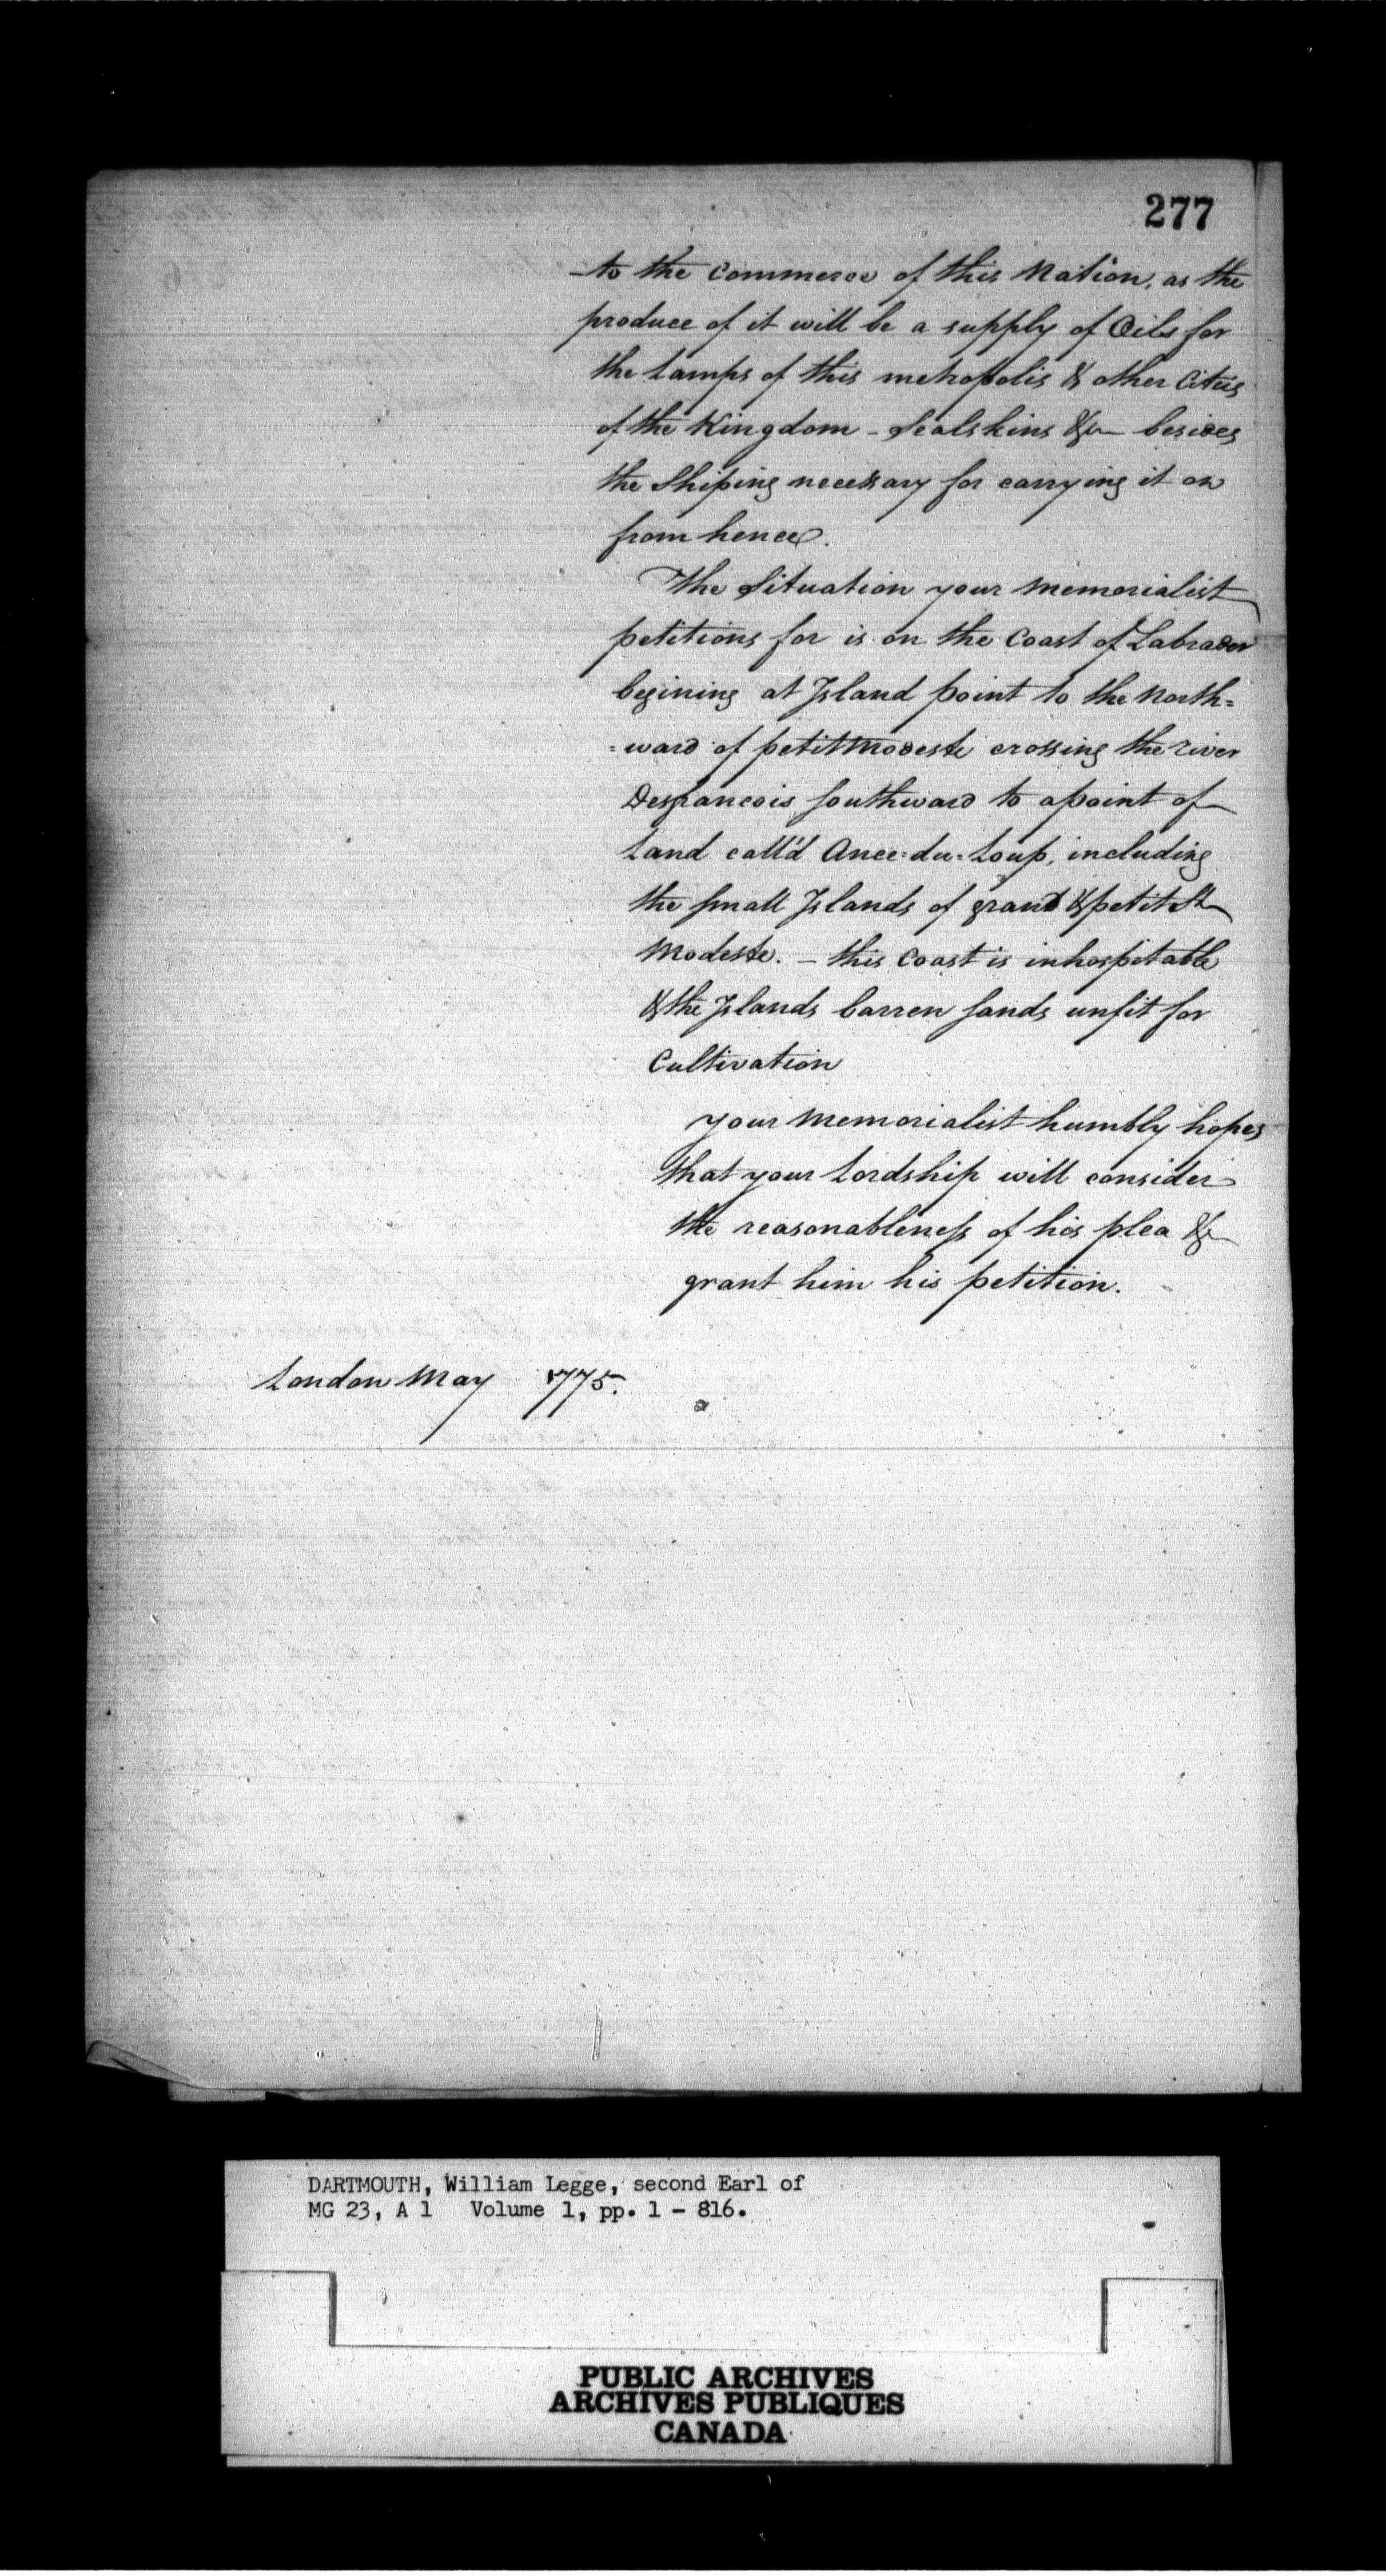 277
to the Commerce of this Nation, as the
produce of it will be a supply of Oils for
the Lamps of this metropolis & other Cities
of the Kingdom - Sealskins &c besides
the Shiping necessary for carrying it on
from hence.
The Situation your memorialist
petitions for is on the Coast of Labrador
begining at Island point to the North=
=ward of petit Modeste crossing the river
Desfrancois Southward to a point of
Land call'd Ance=du=Loup, including
the small Islands of grand & petit St
Modeste. - this Coast is inhospitable
& the Islands barren sands unfit for
Cultivation
your memorialist humbly hopes
that your Lordship will consider
the reasonableness of his plea &
grant him his petition.
London May 1775.
DARTMOUTH, William Legge, second Earl of
MG 23, A 1 Volume 1, pp. 1 - 816.
PUBLIC ARCHIVES
ARCHIVES PUBLIQUES
CANADA